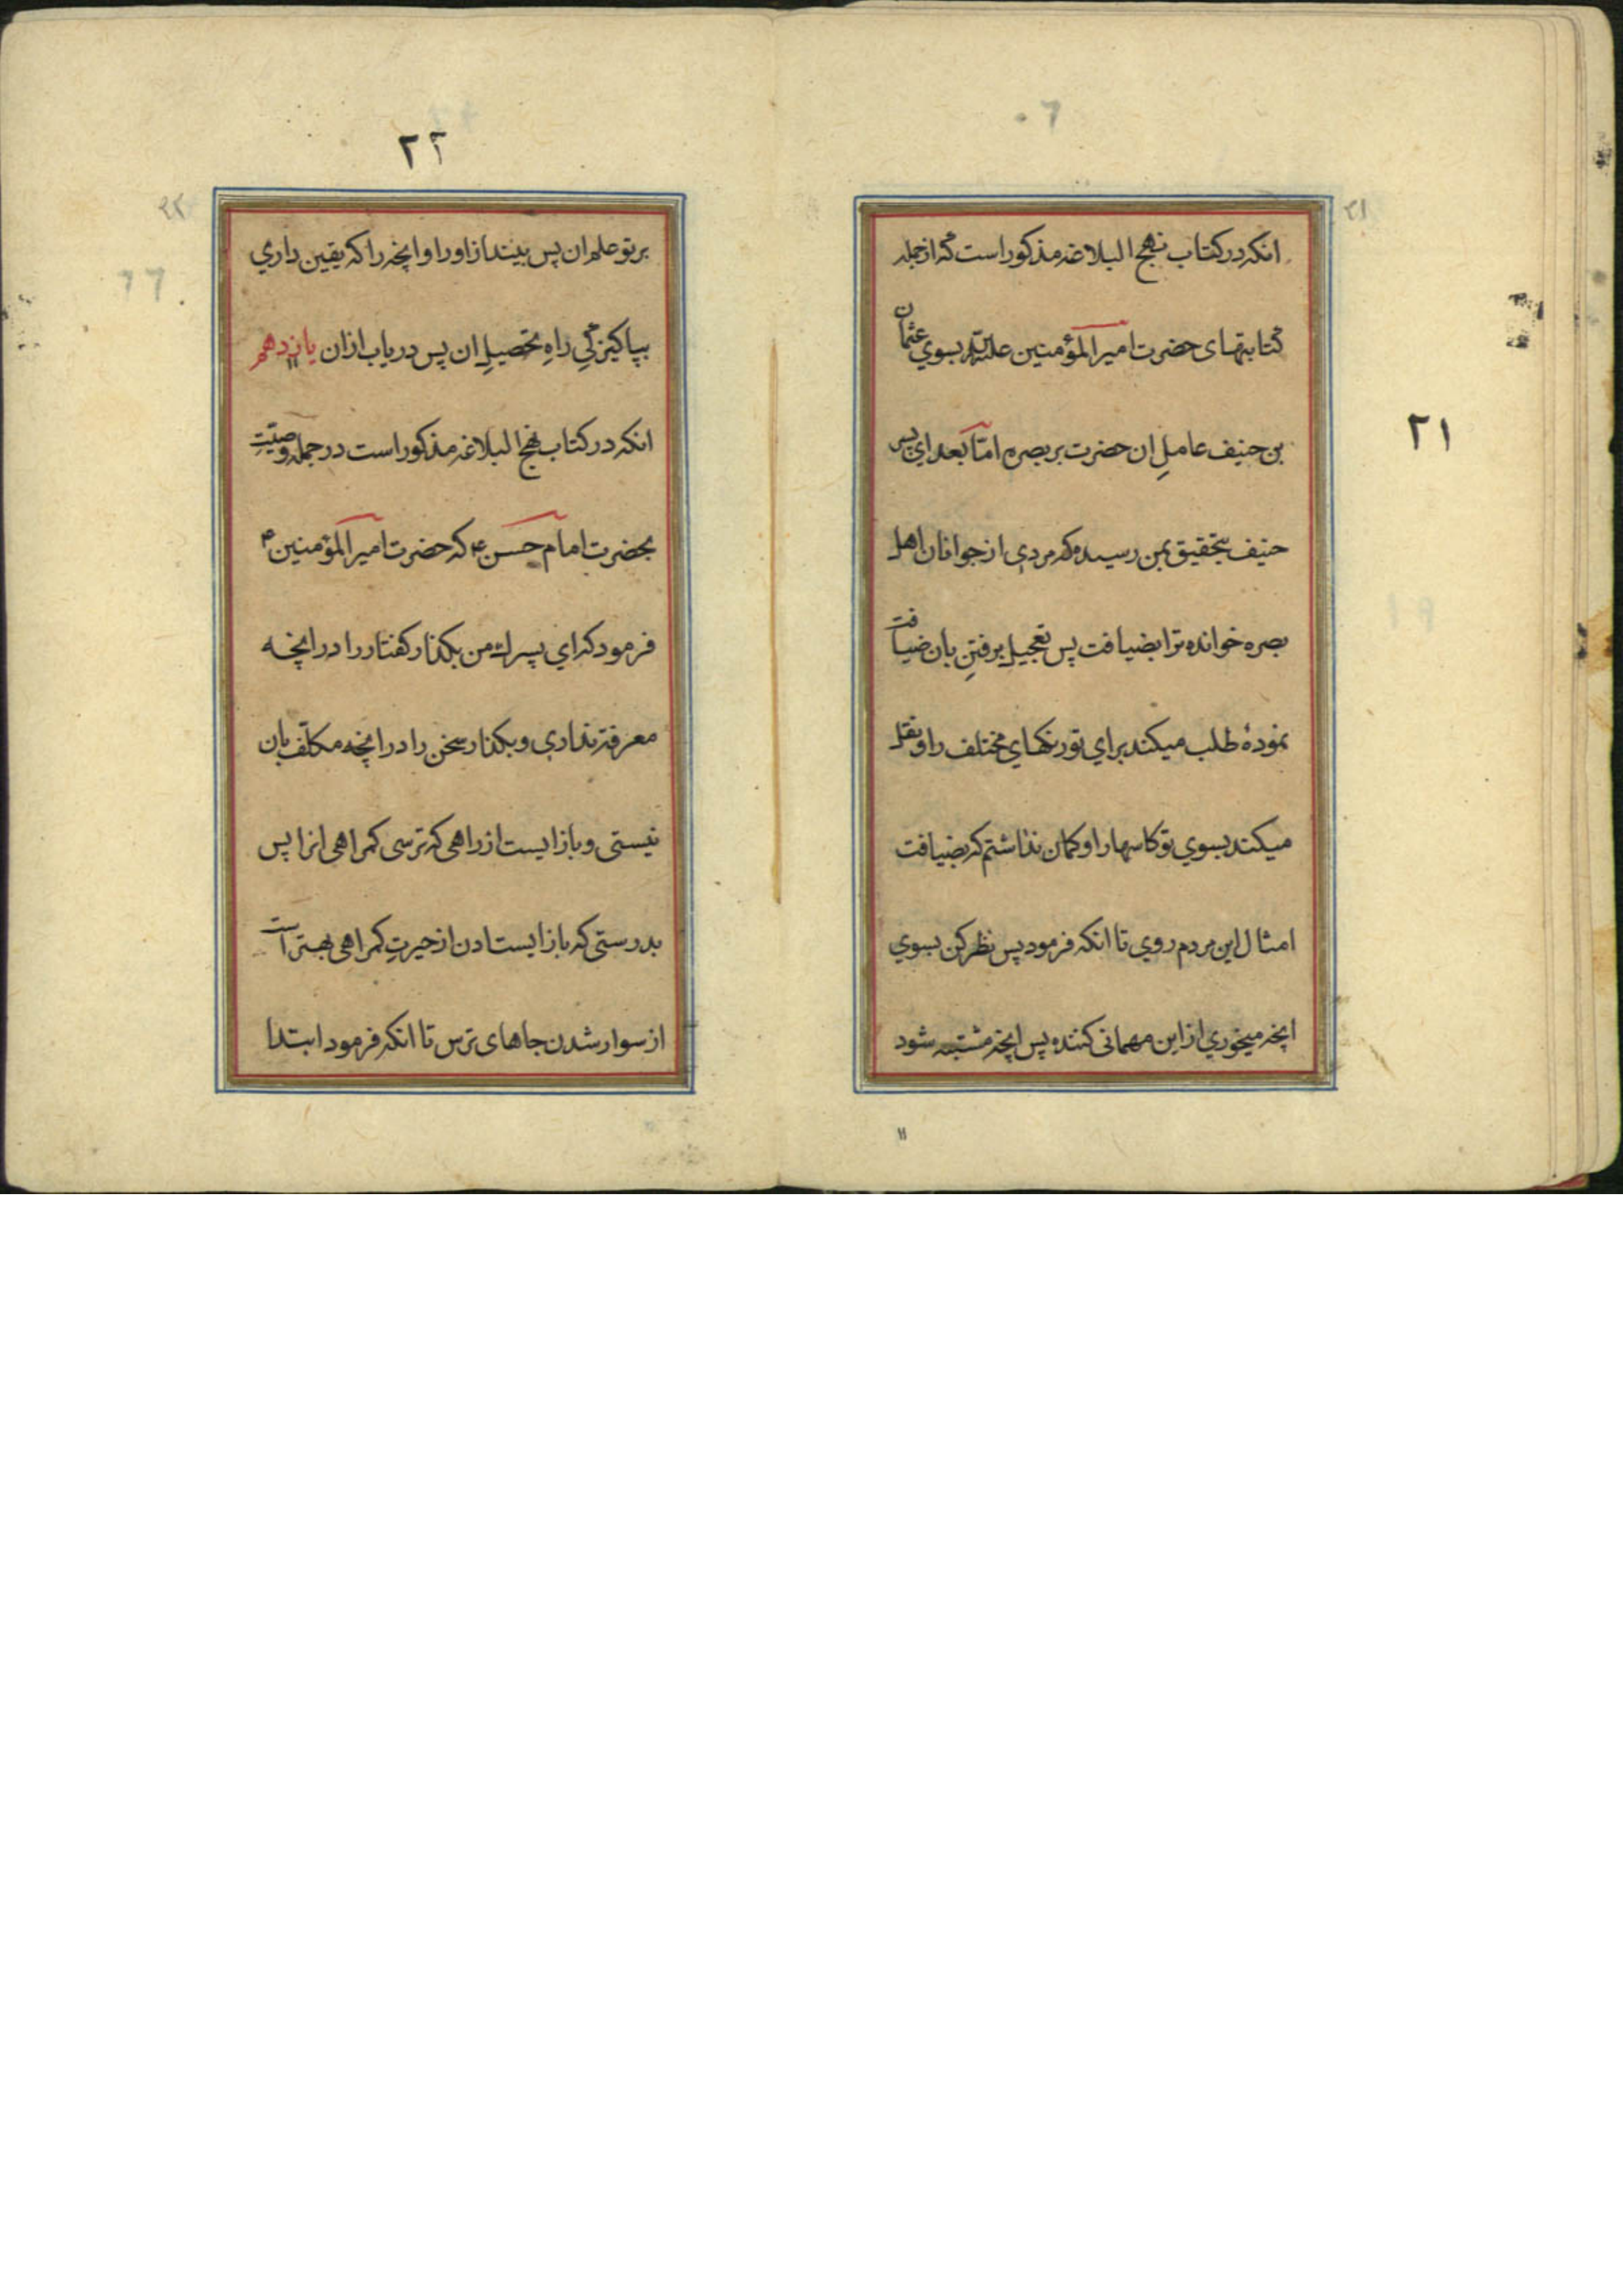 ٢١
انکه در کتاب نهج البلاغه مذکور است که از جمله
کتابتهای حضرت امیر المؤمنین علیه بسوي عثمان
بن حنیف عاملِ ان حضرت بر بصره امّا بعد اي پسر
حنیف بتحقیق بمن رسیده که مردی از جوانان اهل
بصره خوانده ترا بضیافت پس تعجیل برفتنِ بان ضیافت
نمودهٔ طلب میکند براي تو رنکهاي مختلف را و نقل
میکند بسوي تو کاسها را و کمان نداشتم که بضیافت
امثال این مردم روي تا انکه فرمود پس نظر کن بسوي
انچه میخوري از این مهمانی کننده پس انچه مشتبه شود
١١
٢٢
بر تو علم ان پس بینداز او را و انچه را که یقین داري
بپاکیزکیِ راهِ تحصیلِ ان پس دریاب از ان یازدهم
انکه در کتاب نهج البلاغه مذکور است در جمله وصیّتِ
بحضرت امام حسن ع که حضرت امیر المؤمنین ع
فرمود که اي پسرك من بکذار کفتار را در انچه
معرفتِ نداری و بکذار سخن را در انچه مکلّف بان
نیستی و باز ایست از راهی که ترسی کمراهی انرا پس
بدرستی که باز ایستادن از حیرتِ کمراهی بهتر است
از سوار شدن جاهای ترس تا انکه فرمود ابتدا